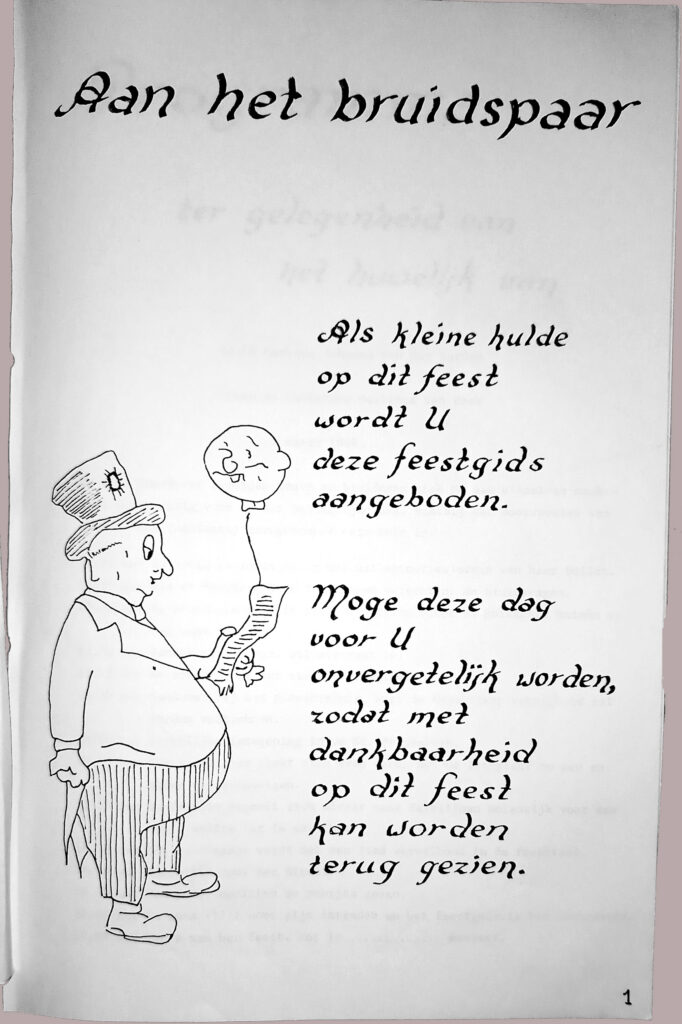 Aan het bruidspaar
ter gelegenheid van
het huwelijk van
Als kleine hulde
op dit feest
wordt U
deze feestgids
aangeboden.
Moge deze dag
voor U
onvergetelijk worden,
zodat met
dankbaarheid
op dit feest
kan worden
terug gezien.
1